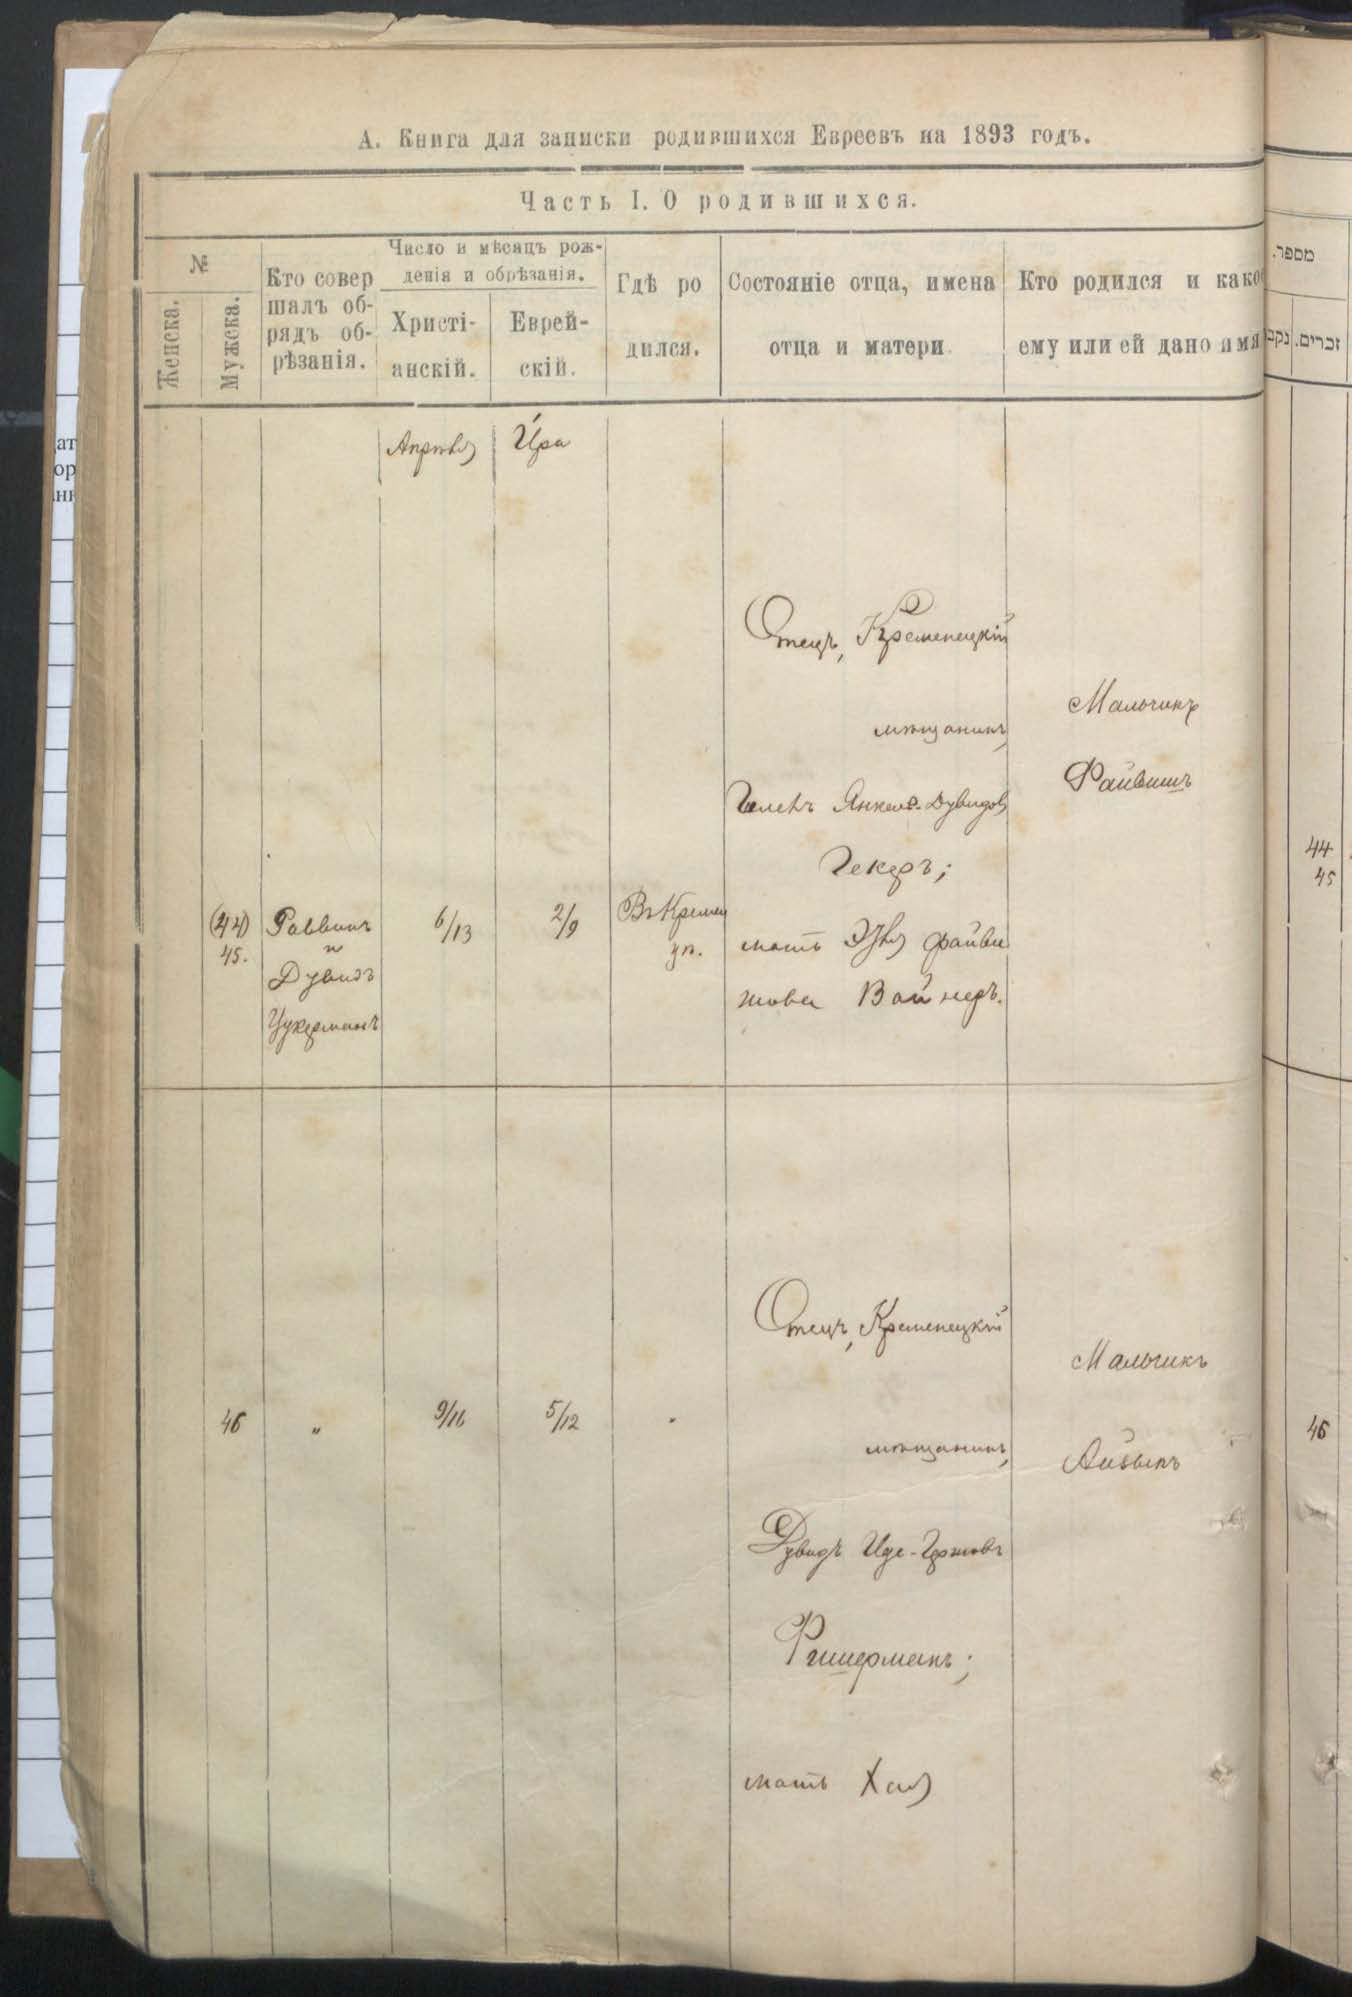 А. Книга для записки родившихся Евреевъ на 1893 годъ.
Часть I. О родившихся.
№
Женска.
Мужска.
Кто совер
шалъ об-
рядъ об-
рѣзанія.
Число и мѣсяцъ рож-
денія и обрѣзанія.
Христі-
анскій.
Еврей-
скій.
Гдѣ ро
дился.
Состояніе отца, имена
отца и матери
Кто родился и како
ему или ей дано имя
מספר.
זכרים.
נקב
Апрѣля
Іра
(44)
45.
Раввинъ
и
Дувидъ
Цукерманъ
6/13
2/9
Въ Кремен
цѣ.
Отецъ, Кременецкій
мѣщанинъ,
Янкель-Дувидов
Гекеръ;
мать Эйдля Файви
шова Вайнеръ.
Мальчикъ
Файвишъ
44
45
46
"
9/16
5/12
"
Отецъ, Кременецкій
мѣщанинъ,
Дувидъ Иде-Гершовъ
Фишерманъ;
мать Хая
Мальчикъ
Айзыкъ
46